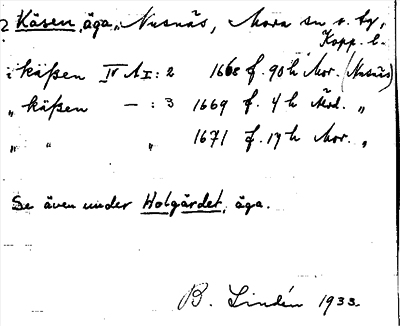 2 Käsen, äga, Nusnäs, Mora sn o. by,
Kopp. l.
i käßen IV A I: 2 1668 f. 90 h Mor. (Nusnäs)
„ käßen — : 3 1669 f. 4 h Mrd. „
„ „ „ 1671 f. 17 h Mor. „
Se även under Holgärdet, äga.
B. Lindén 1933.